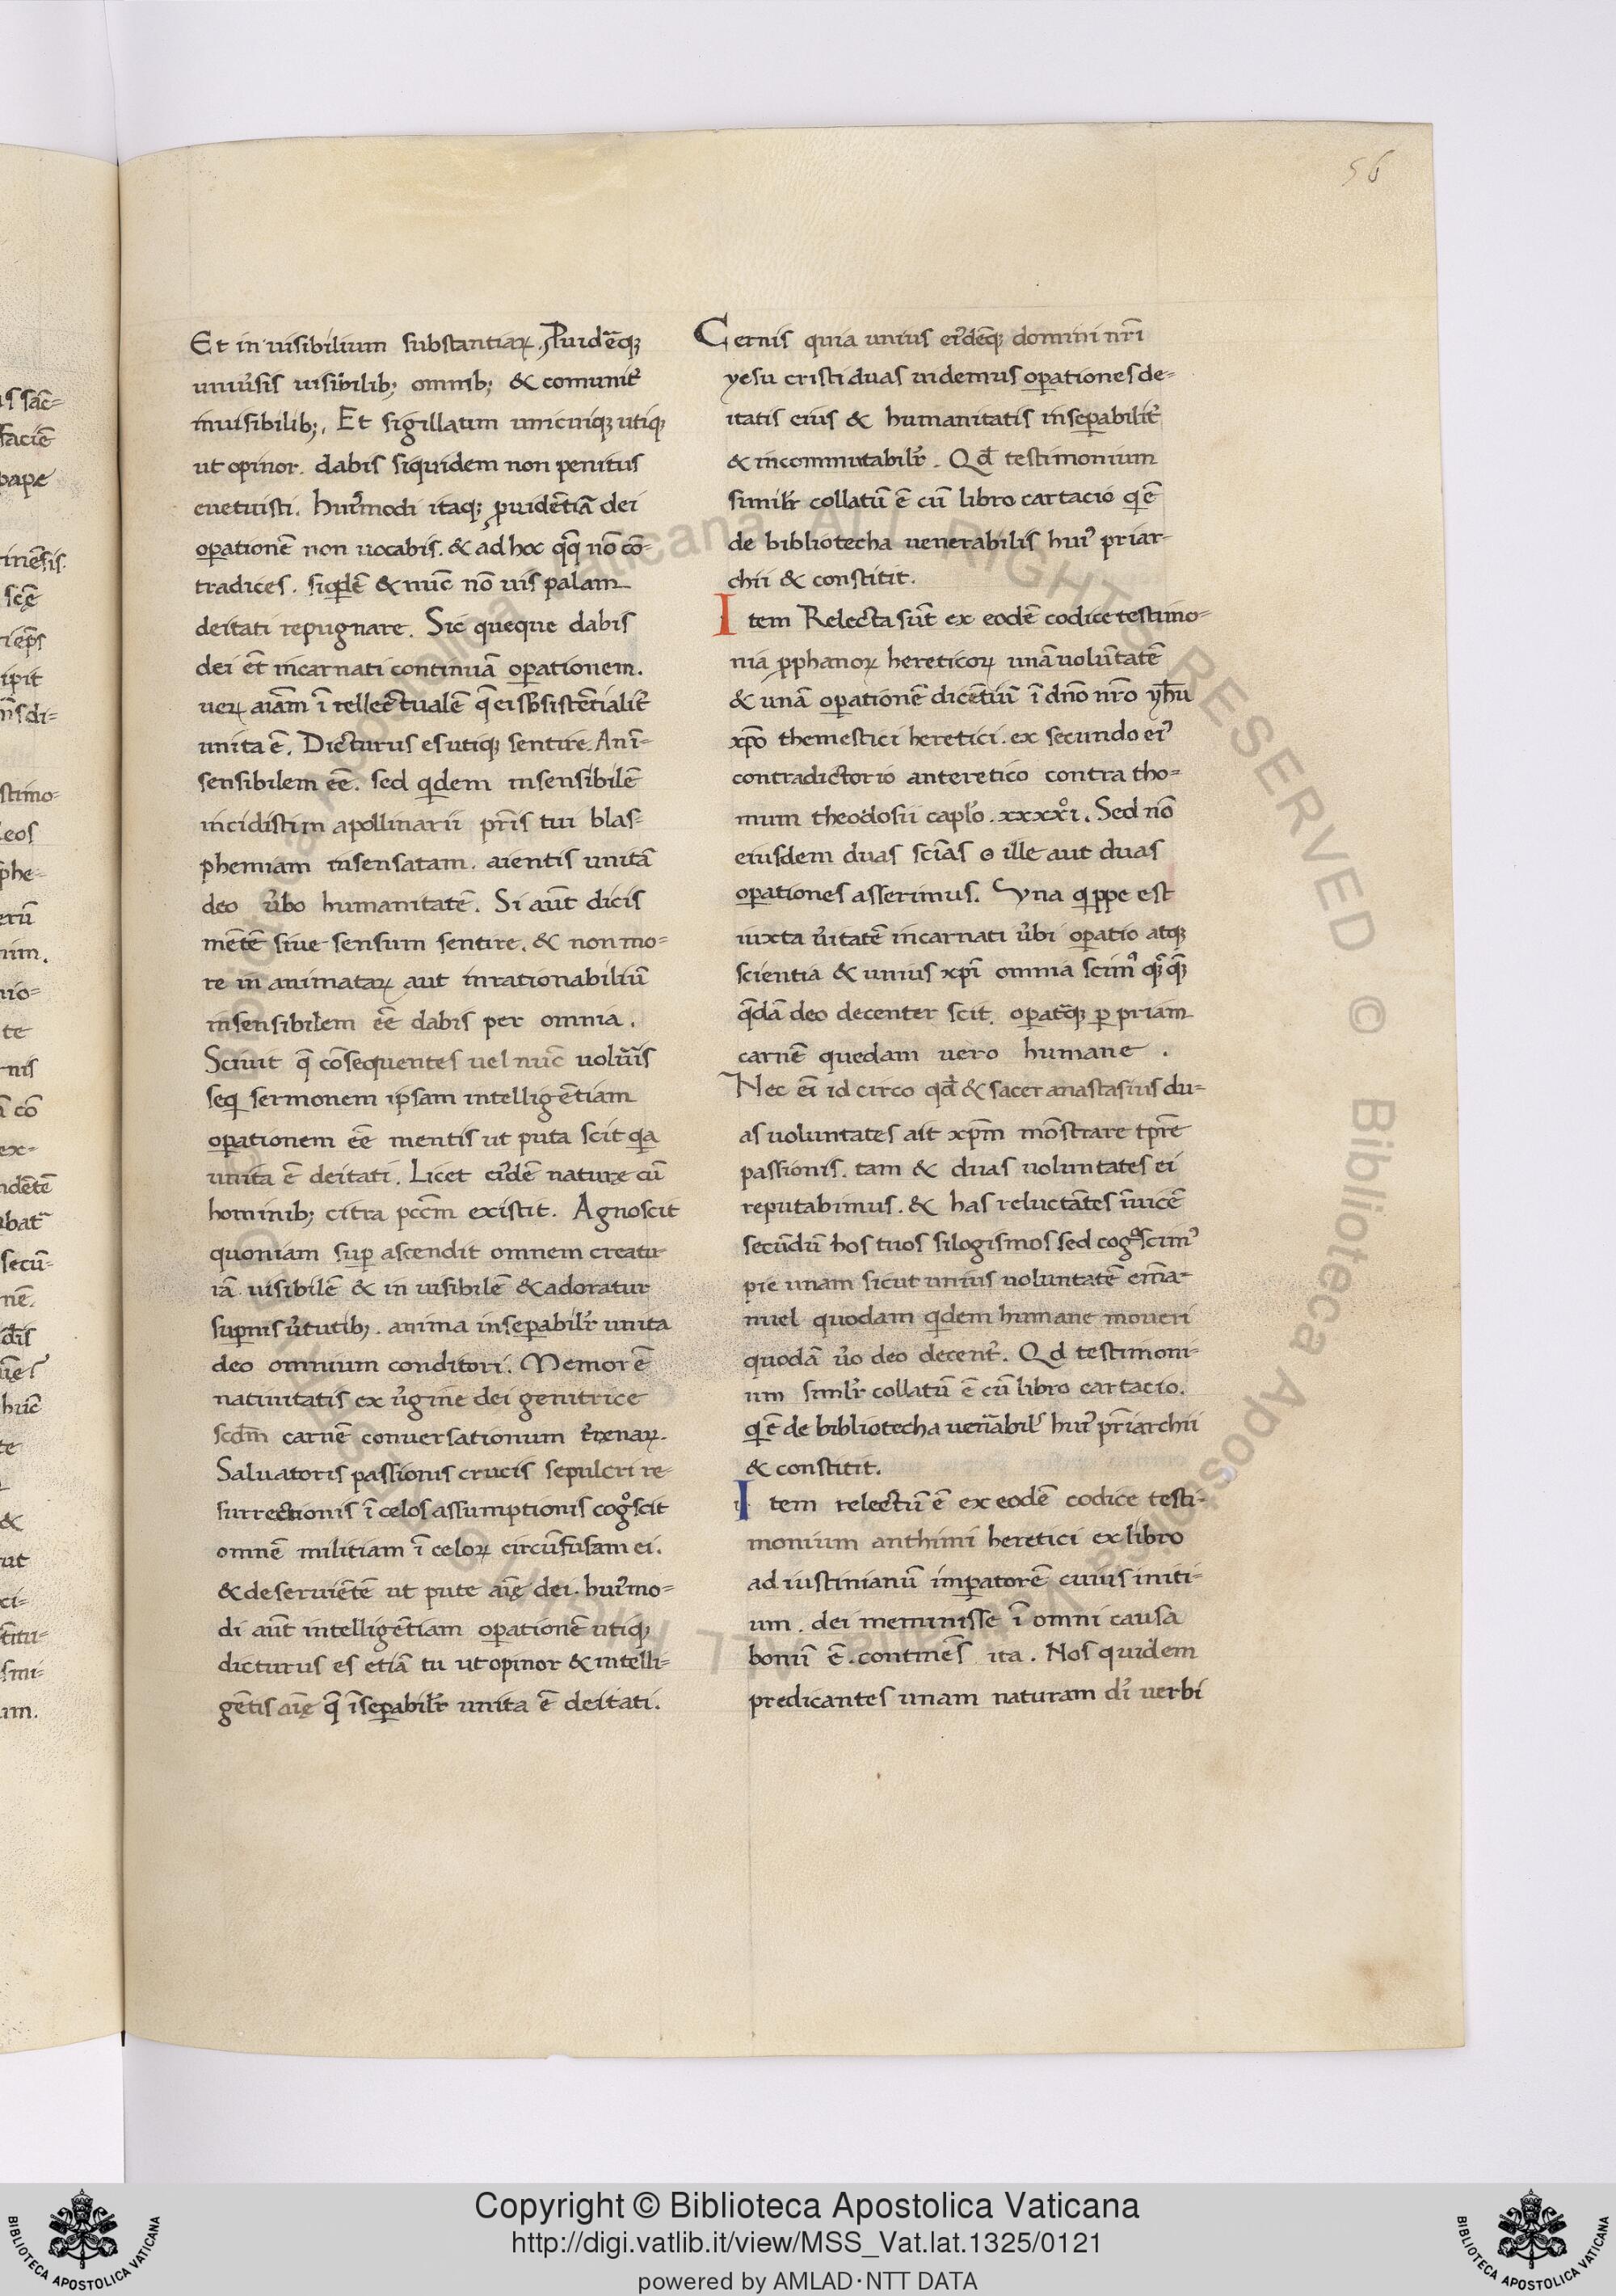 56
Et in uisibilium substantiaꝝ. Puidētiāqꝫ
uniūsis uisibilibꝫ omnibꝫ & comunit̄
inuisibilibꝫ. Et sigillatim unicuiqꝫ utiqꝫ
ut opinor. dabis siquidem non penitus
euetuisti. huiꝰmodi itaqꝫ ꝓuidētiā dei
oꝑationē non uocabis. & ad hoc qq̄ nō cō-
tradices. siqdē & nūc nō uis palam
deitati repugnare. Sic queque dabis
dei et̄ incarnati continuā oꝑationem.
ueꝝ aiam̄ ītellectualē q̄ ei sb̄sistētialit̄
unita ē. Dicturus es utiqꝫ sentire. An ī-
sensibilem eē. sed qdem insensibilē
incidistim apollinarii pr̄is tui blas-
phemiam insensatam. aientis unitā
deo ūbo humanitatē. Si aūt dicis
mētē siue sensum sentire. & non mo-
re in animataꝝ aut inrationabiliū
insensibilem eē dabis per omnia.
Sciuit q̄ cōsequentes uel nūc uolūis
seq sermonem ipsam intelligētiam
oꝑationem eē mentis ut puta scit qa
unita ē deitati. Licet eiꝰdē naturę cū
hominibꝫ citra pccm̄ existit. Agnoscit
quoniam suꝑ ascendit omnem creatu-
rā uisibilē & in uisibilē & adoratur
suꝑnis ūtutibꝫ. anima inseꝑabilr̄ unita
deo omnium conditori. Memor ē
natiuitatis ex ūgine dei genitrice
scdm̄ carnē conuersationum t̄renaꝝ.
Saluatoris passionis crucis sepulcri re-
surrectionis ī celos assumptionis cogͦscit
omnē militiam ī celoꝝ circūfusam ei.
& deseruiētē ut pute aīę dei. huiꝰmo-
di aūt intelligētiam oꝑationē utiqꝫ
dicturus es etiā tu ut opinor & intelli-
gētis aīę q̄ īseꝑabilr̄ unita ē deitati.
Cernis quia unius eiꝰdēqꝫ domini nr̄i
yesu cristi duas uidemus oꝑationes de-
itatis eius & humanitatis inseꝑabilit̄
& incommutabilr̄. Qd̄ testimonium
similr̄ collatū ē cū libro cartacio q ē
de bibliotecha uenerabilis huiꝰ priar-
chii & constitit.
Item Relecta sūt ex eodē codice testimo-
nia ꝓphanoꝝ hereticoꝝ unā uolūtatē
& unā oꝑationē dicētiū ī dn̄o nr̄o yh̄u
xp̄o themestici heretici. ex secundo eiꝰ
contradictorio anteretico contra tho-
mum theodosii caplō. xxxxͦi. Sed nō
eiusdem duas scīas o ille aut duas
oꝑationes asserimus. Vna qppe est
iuxta ūitatē incarnati ūbi oꝑatio atqꝫ
scientia & unius xpī omnia scimꝰ
q̄dā deo decenter scit. oꝑat̄qꝫ ꝑ priam
carnē quedam uero humane.
Nec ei̅ id circo qd̄ & sacer anastasius du-
as uoluntates ait xpm̄ mōstrare tp̄re
passionis. tam & duas uoluntates ei
reputabimus. & has reluctātes īuicē
secūdū hos tuos silogismos sed cogͦscimꝰ
pie unam sicut unius uoluntatē emā-
nuel quodam qdem humane moueri
quodā ūo deo decent̄. Qd testimoni-
um similr̄ collatū ē cū libro cartacio.
q ē de bibliotecha uen̄abilꝰ huiꝰ pr̄iarchii
& constitit.
Item relectū ē ex eodē codice testi-
monium anthimi heretici ex libro
ad iustinianū imꝑatorē cuius initi-
um. dei meminisse ī omni causa
bonū ē. continēs ita. Nos quidem
predicantes unam naturam dī uerbi
Copyright © Biblioteca Apostolica Vaticana
http://digi.vatlib.it/view/MSS_Vat.lat.1325/0121
powered by AMLAD·NTT DATA
BIBLIOTECA APOSTOLICA VATICANA
BIBLIOTECA APOSTOLICA VATICANA